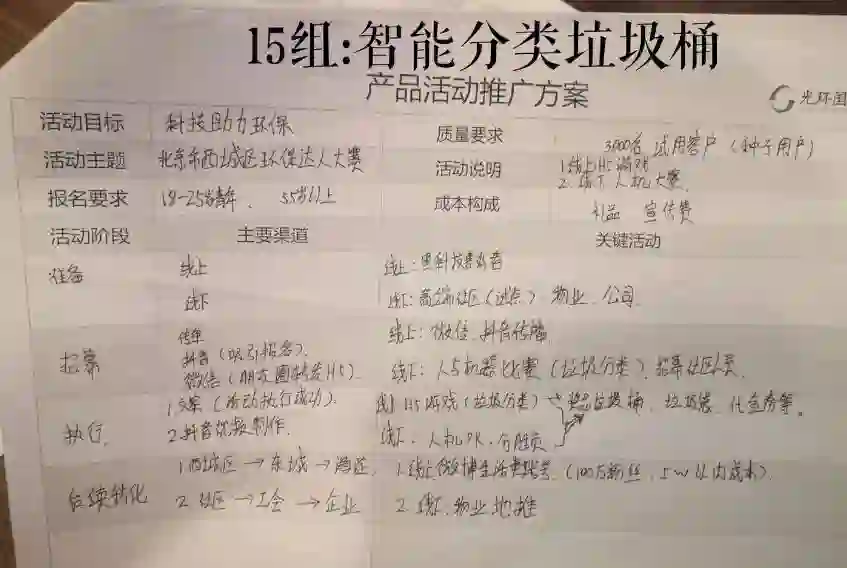 15组:智能分类垃圾桶
产品活动推广方案
光环国
活动目标 科技助力环保
质量要求 3000名 试用客户(种子用户)
活动主题 北京东西城区环保达人大赛
活动说明 1.线上H5游戏
2.线下人机大赛.
报名要求 18-25岁青年、55岁以上
成本构成 礼品 宣传费
活动阶段 主要渠道 关键活动
准备 线上 线上:黑科技
线下 线下:高端社区(试点) 物业、公司.
招募 传单 线上:微信、抖音传播
抖音(吸引报名)、
微信(朋友圈转发H5). 线下:人与机器比赛(垃圾分类).招募社区人员.
执行. 1.文案(活动执行成功). 线上H5游戏(垃圾分类)→奖品垃圾桶、垃圾袋、
2.抖音视频制作. 线下、人机PK、分胜负
后续转化 1.西城区→东城→ 1.线上微博生活类账号.(100万粉丝,5w以内成本).
2.社区→工会→企业 2.线下.物业地推